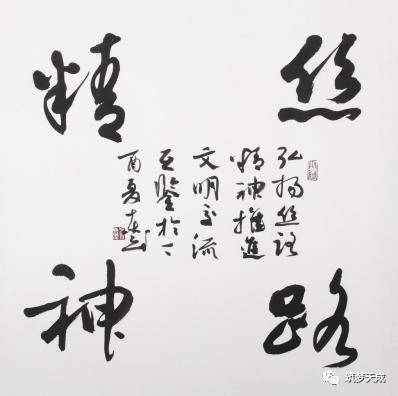 丝路
精神
弘扬丝路
精神推進
文明交流
互鉴於丁
酉夏
筑梦天成